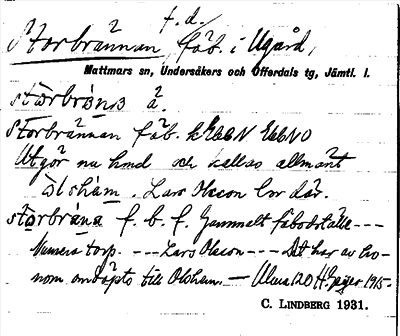 f. d.
Storbrännan, fäb. i Ugård,
Mattmars sn, Undersåkers och Offerdals tg, Jämtl. l.
storbränna å
Storbrännan fäb.
Utgör nu hmd och kallas allmänt
Olsham. Lars Olsson bor där.
storbräna f. b. f. Gammalt fäbodställe ---
Numera torp. --- Lars Olsson --- Det har av ho-
nom omdöpts till Olsham. —
C. LINDBERG 1931.